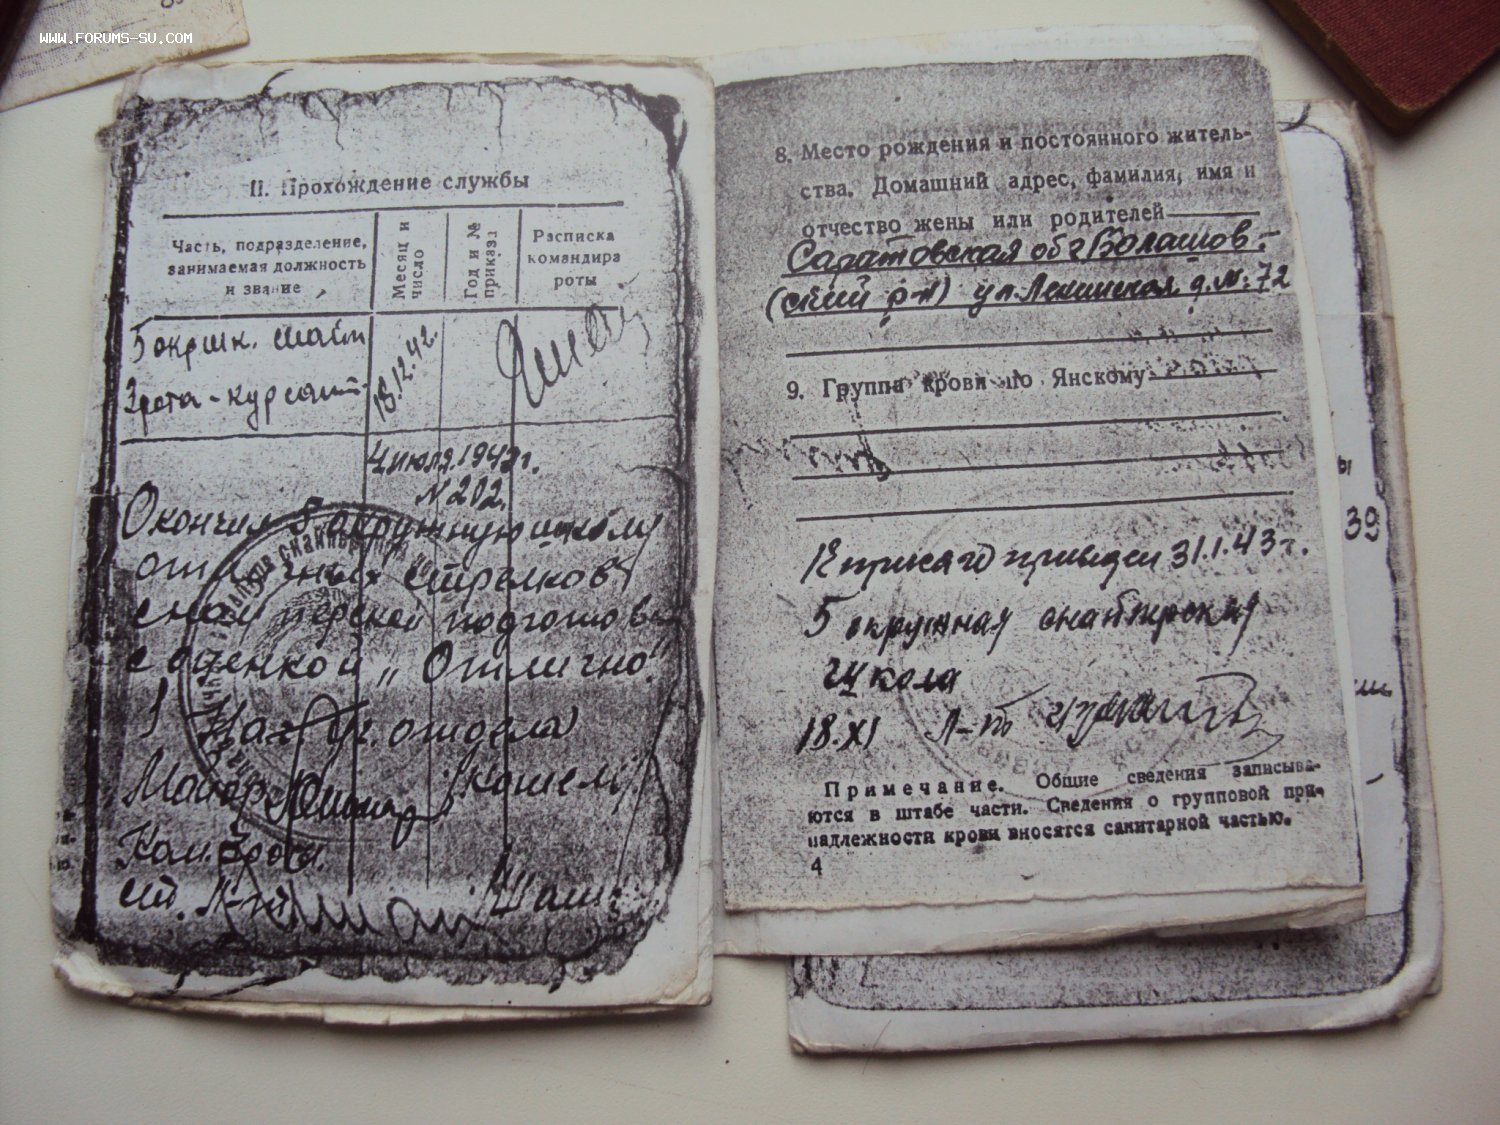 WWW.FORUMS-SU.COM
II. Прохождение службы
Часть, подразделение, занимаемая должность и звание
Месяц и число
Год и № приказа
Расписка командира роты
5 окр шк. снайп
3 рота - курсант
18.12.42.
4 июля 1943г.
N 202.
Окончил 5 окружную школу
отличных стрелков
снайперской подготовки
с оценкой „Отлично"
Нач. отдела
Майор /Кошел
Ком. 3 роты
ст. Л-нт
8. Место рождения и постоянного житель-
ства. Домашний адрес, фамилия, имя и
отчество жены или родителей
Саратовская обл Балашов-
(ский р-н) ул Ленинская д. №: 72
9. Группа крови по Янскому
К присяге приведен 31.1.43г.
5 окружная снайперская
школа
18.XI Л-нт
Примечание. Общие сведения записыва-
ются в штабе части. Сведения о групповой при-
надлежности крови вносятся санитарной частью.
4
39